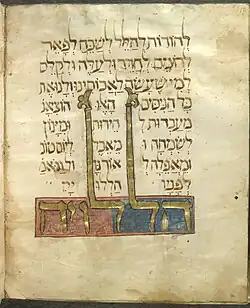 להודות להלל לשבח לפאר
לרומם להדר ולעלה ולקלס
למי שעשה לאבותינו ולנו את
כל הניסים האלו הוציאנו
מעבדות לחירות ומיגון
לשמחה ומאבל ליום טוב
ומאפלה לאור
לפניו הללו יה
הללויה